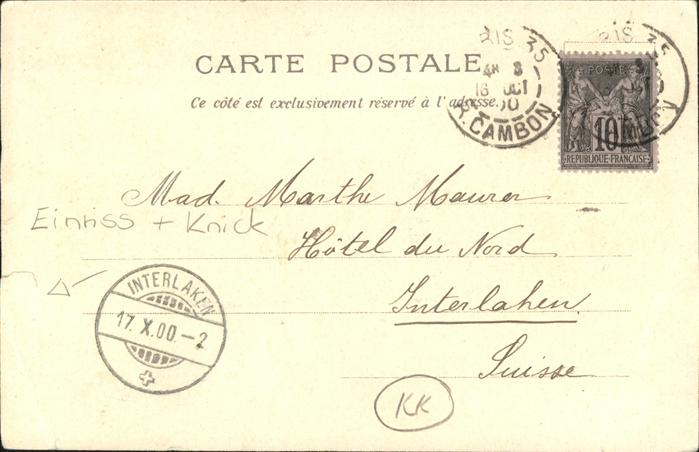 CARTE POSTALE
Ce côté est exclusivement réservé à l'adresse.
RIS 35
16 OCT
R. CAMBON
POSTE
10
REPUBLIQUE FRANÇAISE
Mad. Marthe Maurer
Einriss + Knick
Hôtel du Nord
Interlaken
Suisse
INTERLAKEN
17. X. 00. - 2
KK